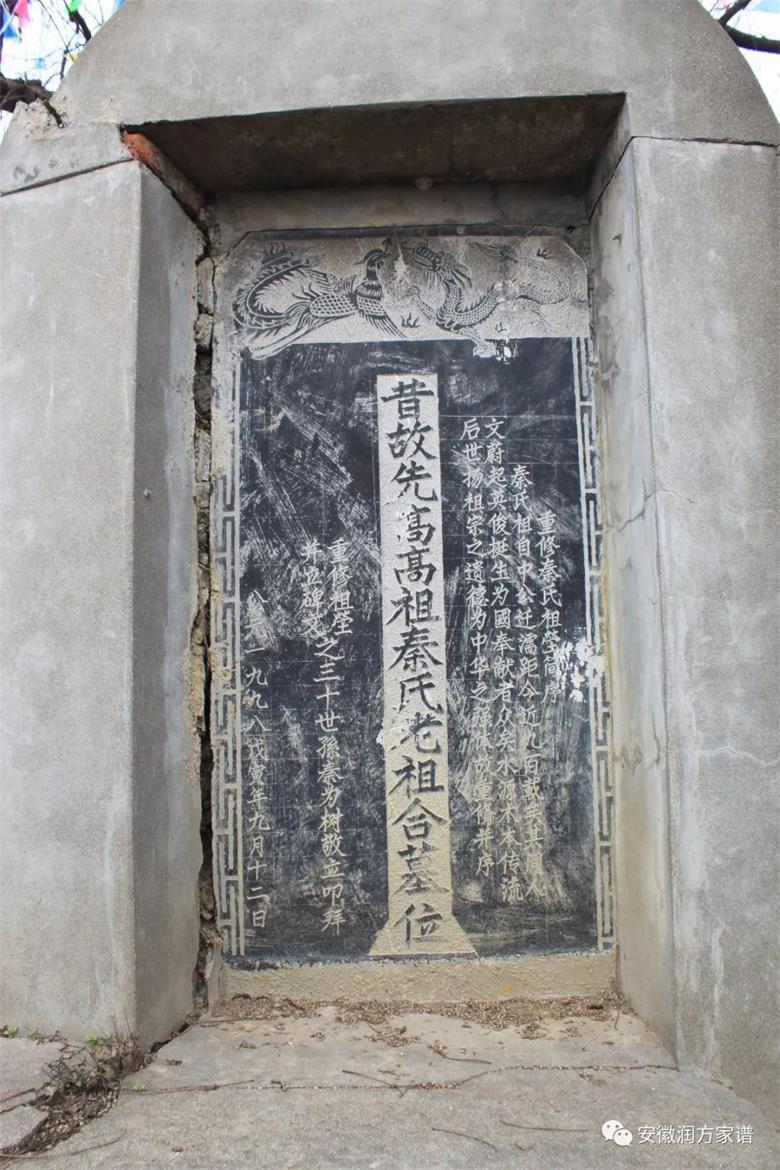 重修秦氏祖塋简序
秦氏祖自中公迁濡距今近九百載矣其間人
文蔚起英俊挺生为國奉献者众矣水源木本传流
后世扬祖宗之遗德为中华之强依故重修并序
昔故先高高祖秦氏老祖合墓位
重修祖塋
并立碑文
之三十世孫秦为树敬立叩拜
公元一九九八戊寅年九月十二日
安徽润方家谱